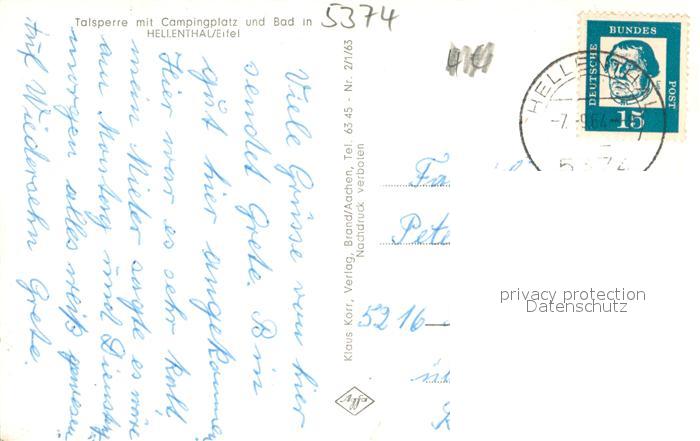 Talsperre mit Campingplatz und Bad in
HELLENTHAL/Eifel
5374
Viele Grüsse von hier
sendet Grete. Bin
gut hier angekommen
Hier war es sehr kalt
mein Mieter sagte es wäre
am Montag und Dienstag
morgen alles weiß gewesen
Auf Wiedersehn Grete.
Klaus Korr, Verlag, Brand/Aachen, Tel. 6345 - Nr. 2/1/63
Nachdruck verboten
DEUTSCHE
BUNDES
POST
15
HELLENTHAL
-7.-9.64-
5374
Pete
5216
privacy protection
Datenschutz